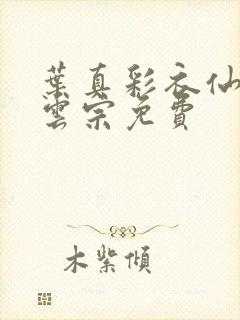 葉真彩衣仙
雲宗免費
木紫傾